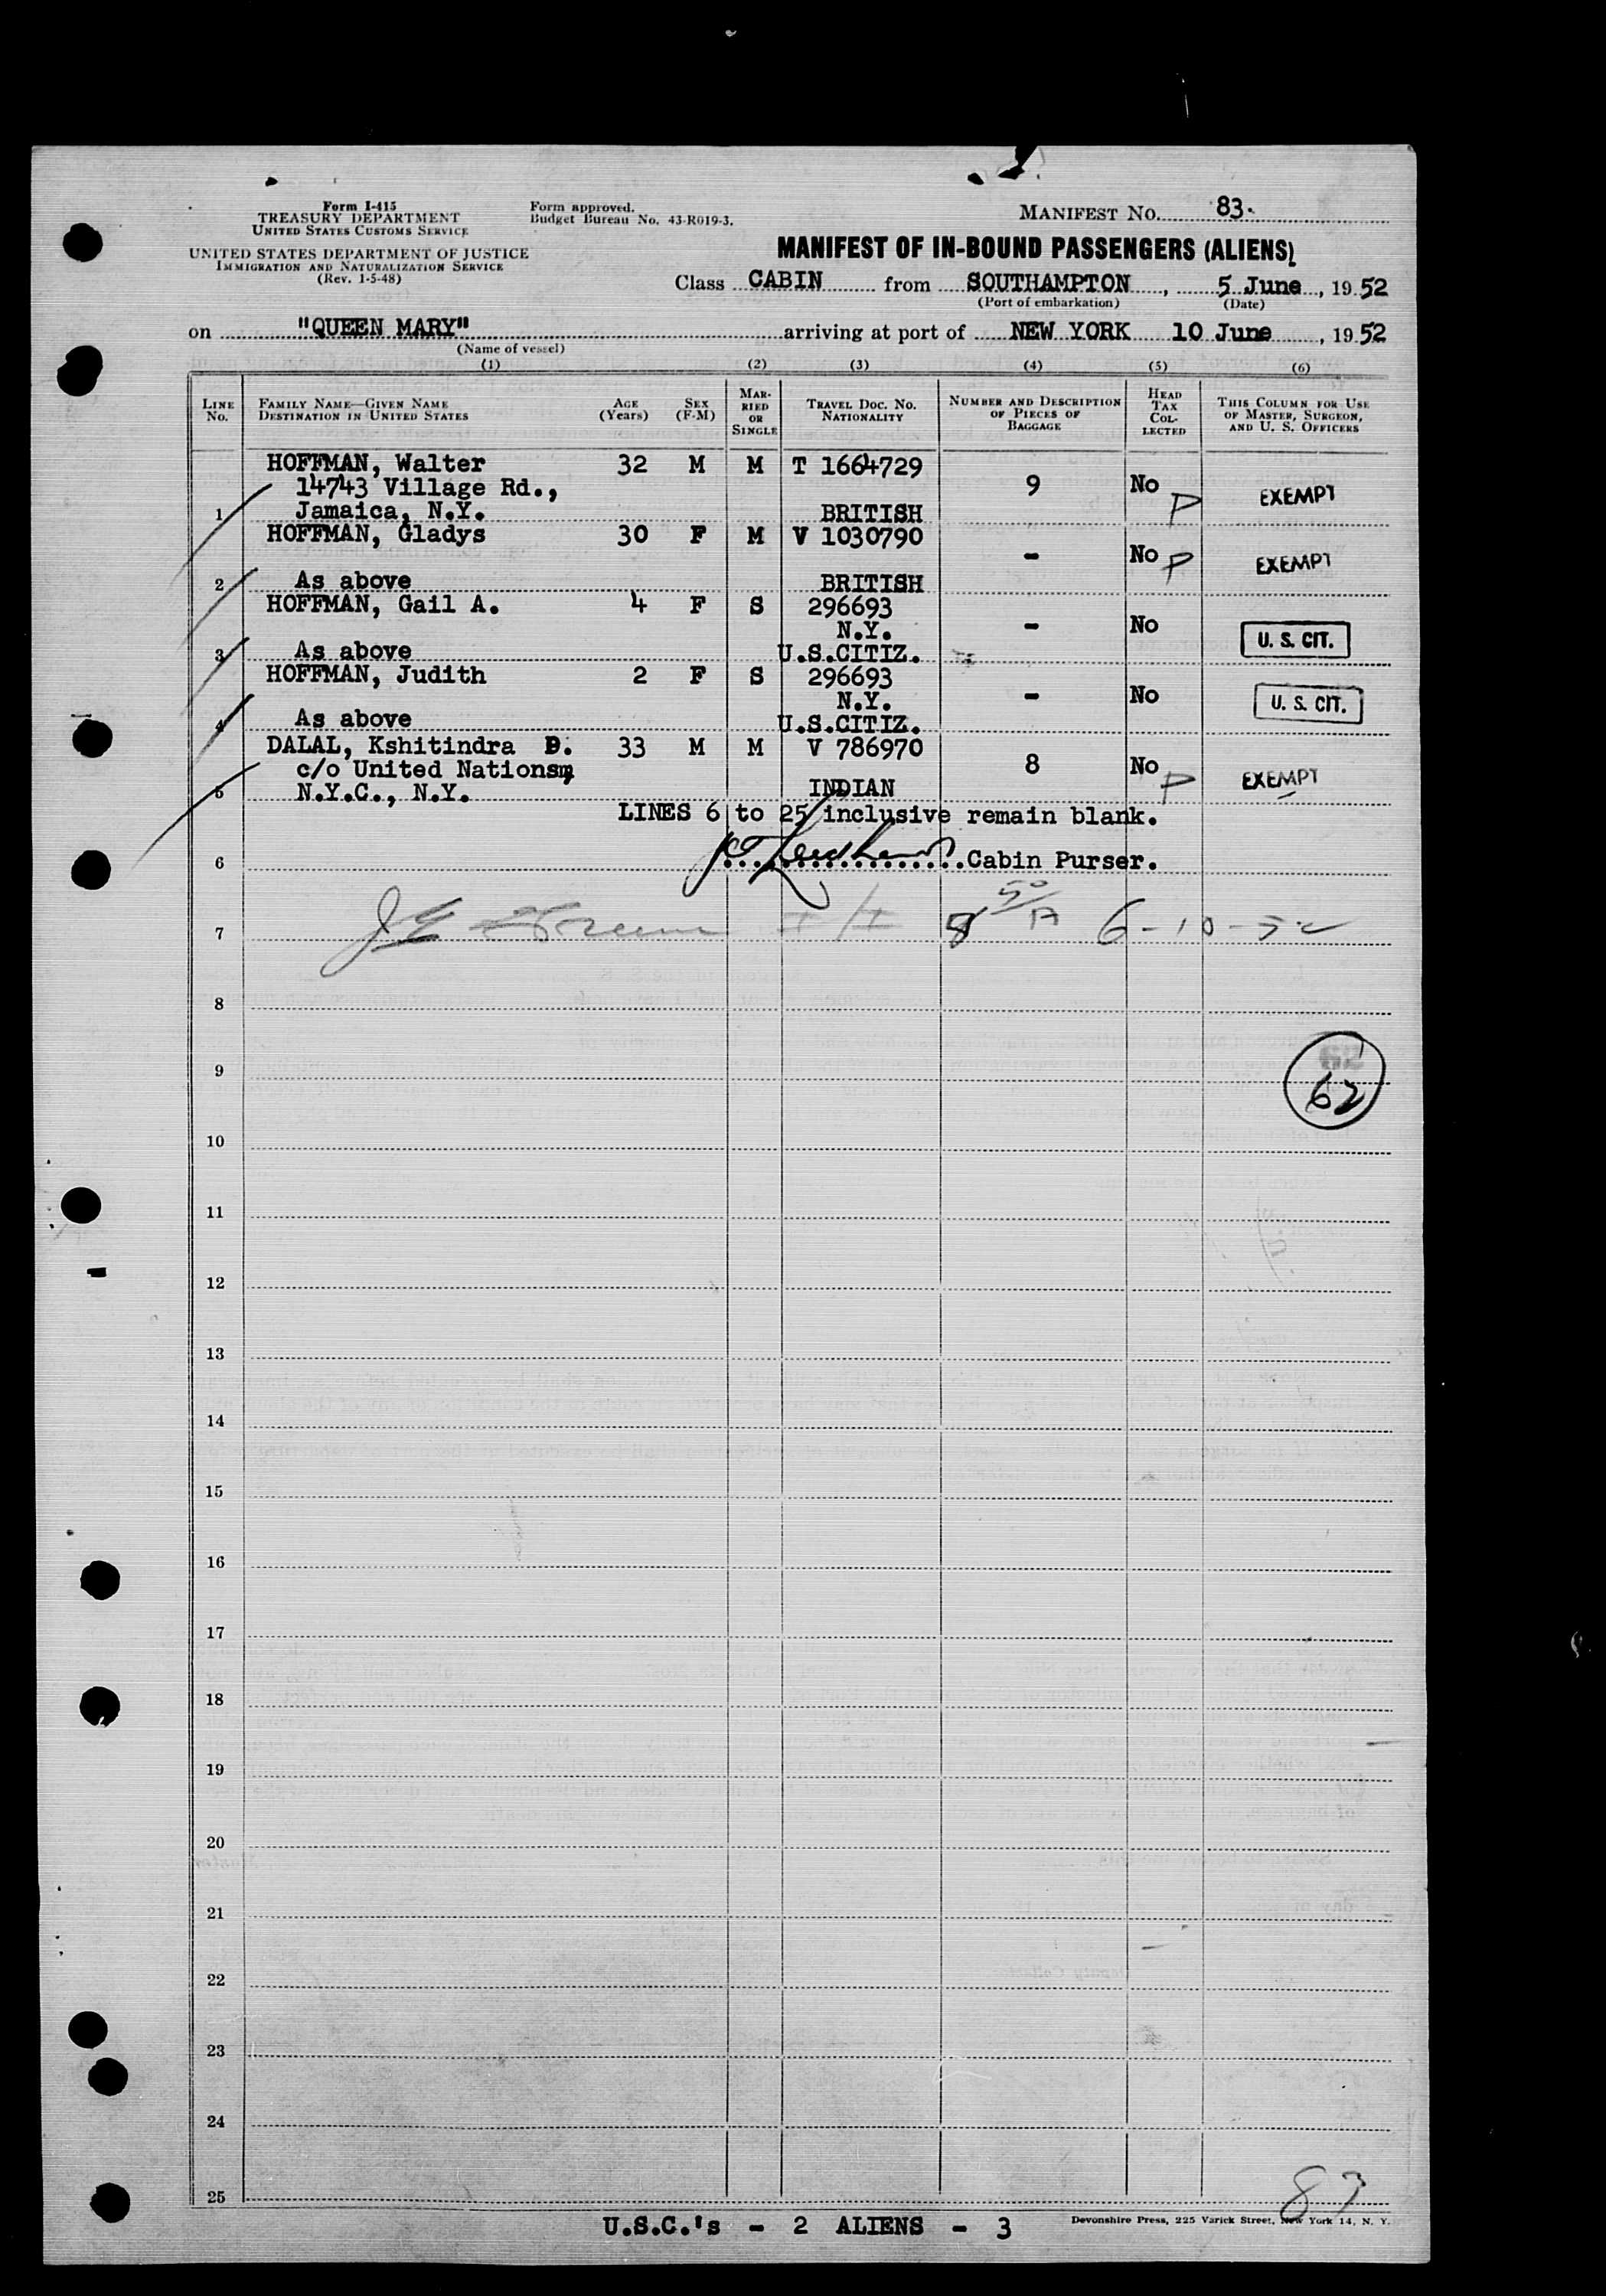 Form I-415
TREASURY DEPARTMENT
UNITED STATES CUSTOMS SERVICE
UNITED STATES DEPARTMENT OF JUSTICE
IMMIGRATION AND NATURALIZATION SERVICE
(Rev. 1-5-48)
Form approved.
Budget Bureau No. 43-R019-3.
MANIFEST NO. 83.
MANIFEST OF IN-BOUND PASSENGERS (ALIENS)
Class CABIN from SOUTHAMPTON, 5 June, 1952
(Port of embarkation) (Date)
on "QUEEN MARY" arriving at port of NEW YORK 10 June, 1952
(Name of vessel)
(1) (2) (3) (4) (5) (6)
LINE No. FAMILY NAME—GIVEN NAME DESTINATION IN UNITED STATES AGE (Years) SEX (F-M) MARRIED OR SINGLE TRAVEL DOC. NO. NATIONALITY NUMBER AND DESCRIPTION OF PIECES OF BAGGAGE HEAD TAX COLLECTED THIS COLUMN FOR USE OF MASTER, SURGEON, AND U. S. OFFICERS
HOFFMAN, Walter 32 M M T 1664729
14743 Village Rd., 9 No P EXEMPT
1 Jamaica, N.Y. BRITISH
HOFFMAN, Gladys 30 F M V 1030790
- No P EXEMPT
2 As above BRITISH
HOFFMAN, Gail A. 4 F S 296693
N.Y. - No U. S. CIT.
3 As above U.S.CITIZ.
HOFFMAN, Judith 2 F S 296693
N.Y. - No U. S. CIT.
4 As above U.S.CITIZ.
DALAL, Kshitindra D. 33 M M V 786970
c/o United Nations, 8 No P EXEMPT
5 N.Y.C., N.Y. INDIAN
LINES 6 to 25 inclusive remain blank.
6 Cabin Purser.
7 6-10-52
8
9
62
10
11
12
13
14
15
16
17
18
19
20
21
22
23
24
25
83
U.S.C.'s - 2 ALIENS - 3
Devonshire Press, 225 Varick Street, New York 14, N. Y.